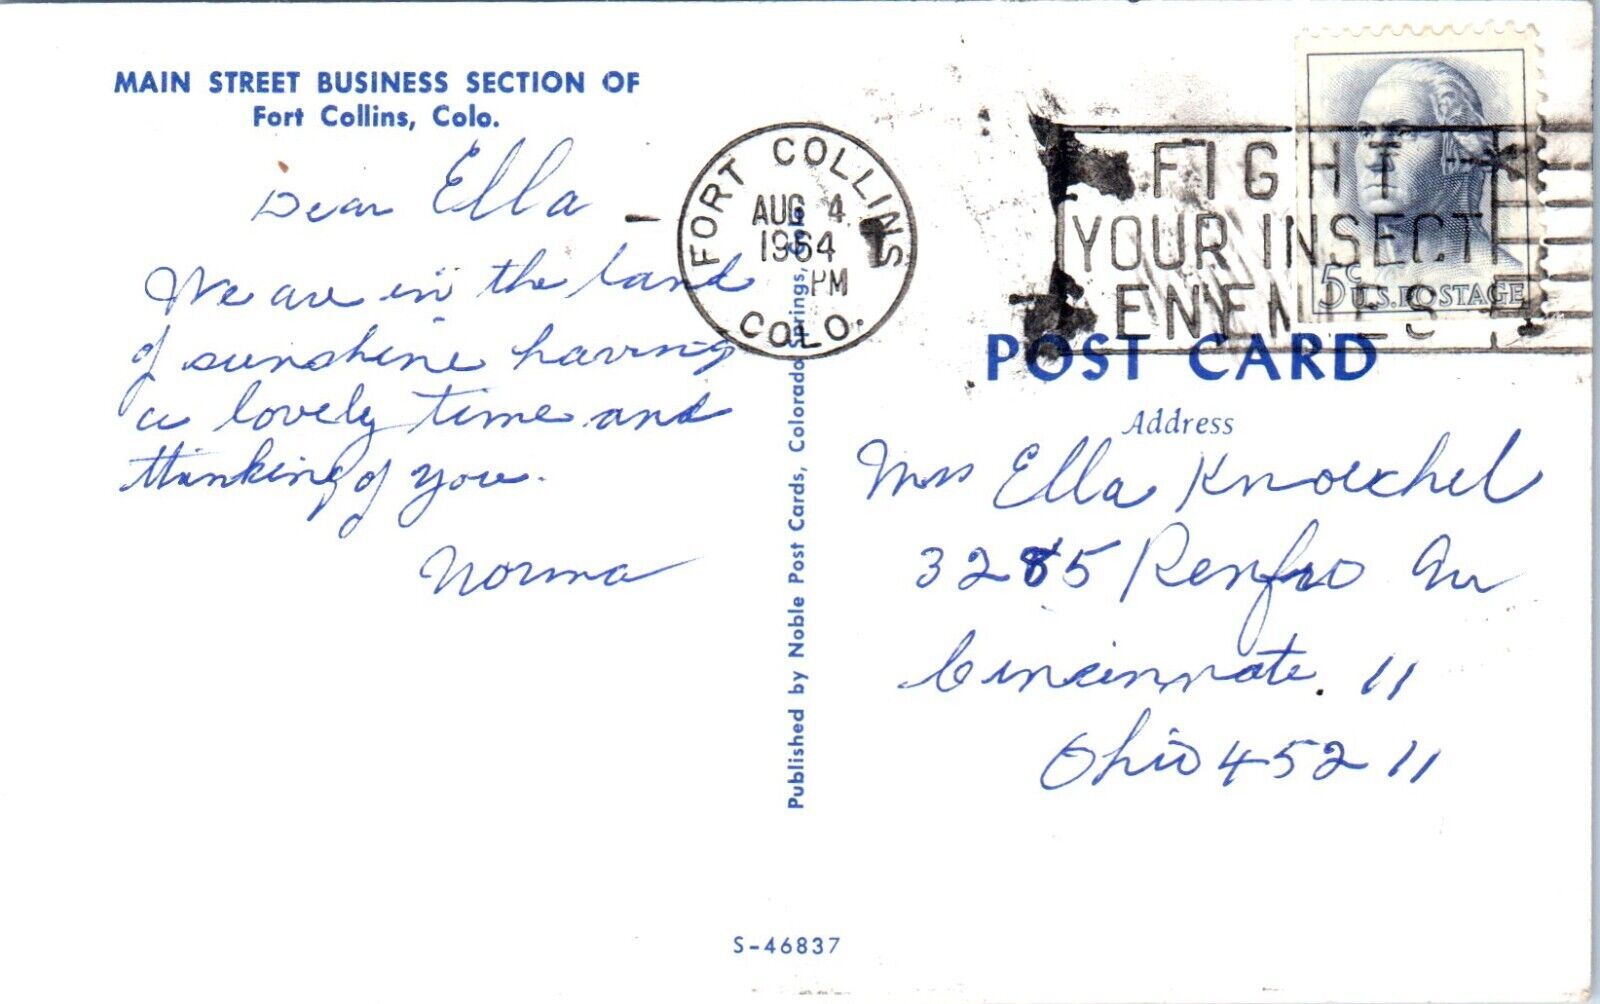 MAIN STREET BUSINESS SECTION OF
Fort Collins, Colo.
Dear Ella —
We are in the land
of sunshine having
a lovely time and
thinking of you.
Norma
FORT COLLINS
AUG 4
1964
PM
COLO.
FIGHT
YOUR INSECT
ENEMIES
5c U.S. POSTAGE
POST CARD
Address
Mrs Ella Knoechel
3285 Renfro Av
Cincinnate. 11
Ohio 45211
Published by Noble Post Cards, Colorado Springs, Colo.
S-46837